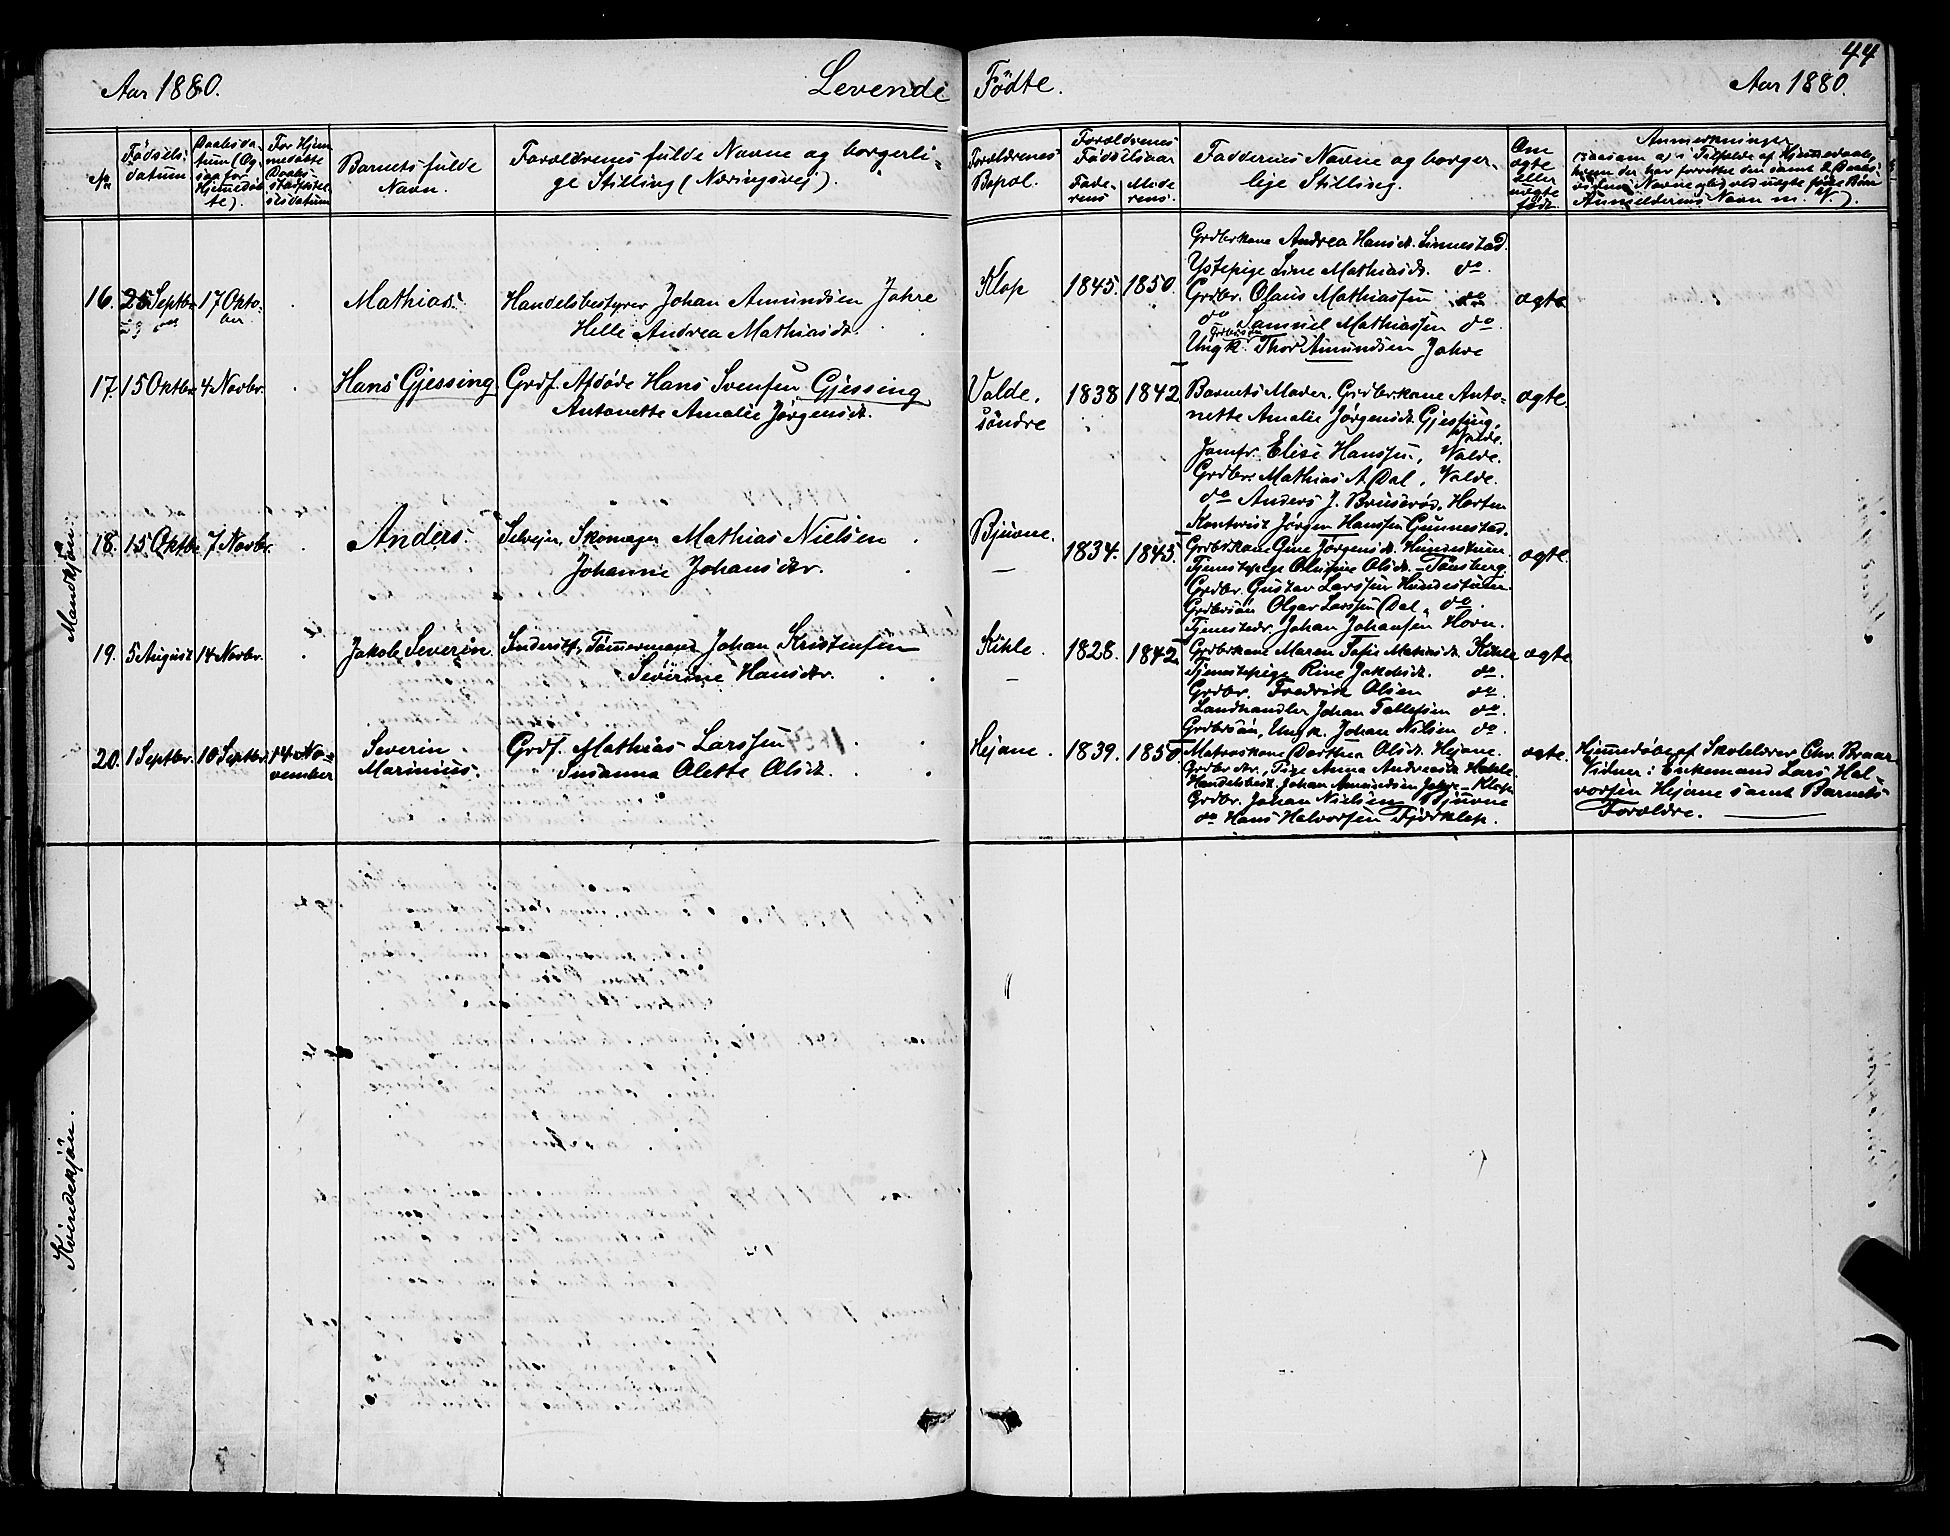 44
Aar 1880. Levende Fødte. Aar 1880.
№
Fødsels-
datum.
Daabsda-
tum (Og-
saa for
Hjemedøb-
te).
For Hjem-
medøbte
Daabs-
Stadfæstel-
sesdatum
Barnets fulde
Navn.
Forældrenes fulde Navne og borgerli-
ge Stilling (Næringsvej).
Forældrenes
Bopæl.
Forældrenes
Fødselsaar
Fade-
rens
Mode-
rens.
Faddernes Navne og borger-
lige Stilling.
Om
ægte
eller
uægte
født.
Anmerkninger
Mandkjøn.
16. 25 Septbr. 17 Okto-
ber
Mathias.
Handelsbestyrer Johan Amundsen Jahre
Helle Andrea Mathiasdt.
Klop 1845. 1850.
Grdbrkone Andrea Hansdt. Linnestad.
Ystepige Line Mathiasdt. do.
Grdbr. Olaus Mathiassen do
do Samuel Mathiassen do.
Ungk. Thor Amundsen Jahre
ægte
17. 15 Oktbr. 4 Novbr.
Hans Gjessing
Grdf. Afdøde Hans Svensen Gjessing
Antonette Amalie Jørgensdt.
Valde,
søndre
1838 1842
Barnets Moder, Grdbrkone Anto-
nette Amalie Jørgensdt. Gjessing,
Valde.
Jomfr. Elise Hanssen, Valde.
Grdbr. Mathias A Dal, Valde.
do Anders J. Bruserød, Horten
Kontorist Jørgen Hanssen Gunnestad.
ægte.
18. 15 Oktbr. 7 Novbr.
Anders.
Selvejer, Skomager Mathias Nielsen
Johanne Johansdtr.
Bjuvne.
1834. 1845.
Grdbrkone Gine Jørgensdt. Hundestuen.
Tjenestepige Olufine Olsdt. Tønsberg
Grdbr. Gustav Larssen Hundestuen
Grdbrsøn Olgar Larssen Dal, do.
Tjenestedr. Johan Johansen Horn.
ægte.
19. 5 August 14 Novbr.
Jakob Severin.
Inderst, Tømmermand Johan Kristensen
Severine Hansdtr.
Kihle. 1828. 1842
Grdbrkone Maren Sofie Mathisdt. Kihle
Tjenestepige Rine Jakobsdt. do.
Grdbr. Fredrik Olsen do.
Landhandler Johan Tollefsen do.
Grdbrsøn, Ungk. Johan Nilsen do.
ægte
20. 1 Septbr. 10 Septbr. 14 No-
vember
Severin
Marinius.
Grdf. Mathias Larssen
Susanna Olette Olsdt.
Hejane. 1839. 1850.
Matroskone Dorthea Olsdt. Hejane.
Grdbrdtr., Pige Anna Andreasdt. Hekle.
Handelsbest. Johan Amundsen Jahre Klop
Grdbr. Johan Nielsen Bjuvne
do Hans Halvorsen Fjærklep.
ægte.
Hjemedøbt af Skolelærer Chr. Braar
Vidner: Enkemand Lars Hal-
vorsen Hejane samt Barnets
Forældre.
Kvindekjøn.